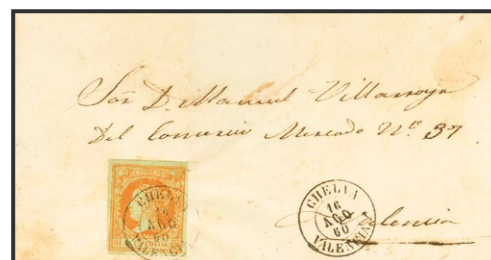 Sor. D. Manuel Villarroya
Del Comercio Mercado Nº 37
CHELVA
16
AGO
60
VALENCIA
CHELVA
16
AGO
60
VALENCIA
Valencia